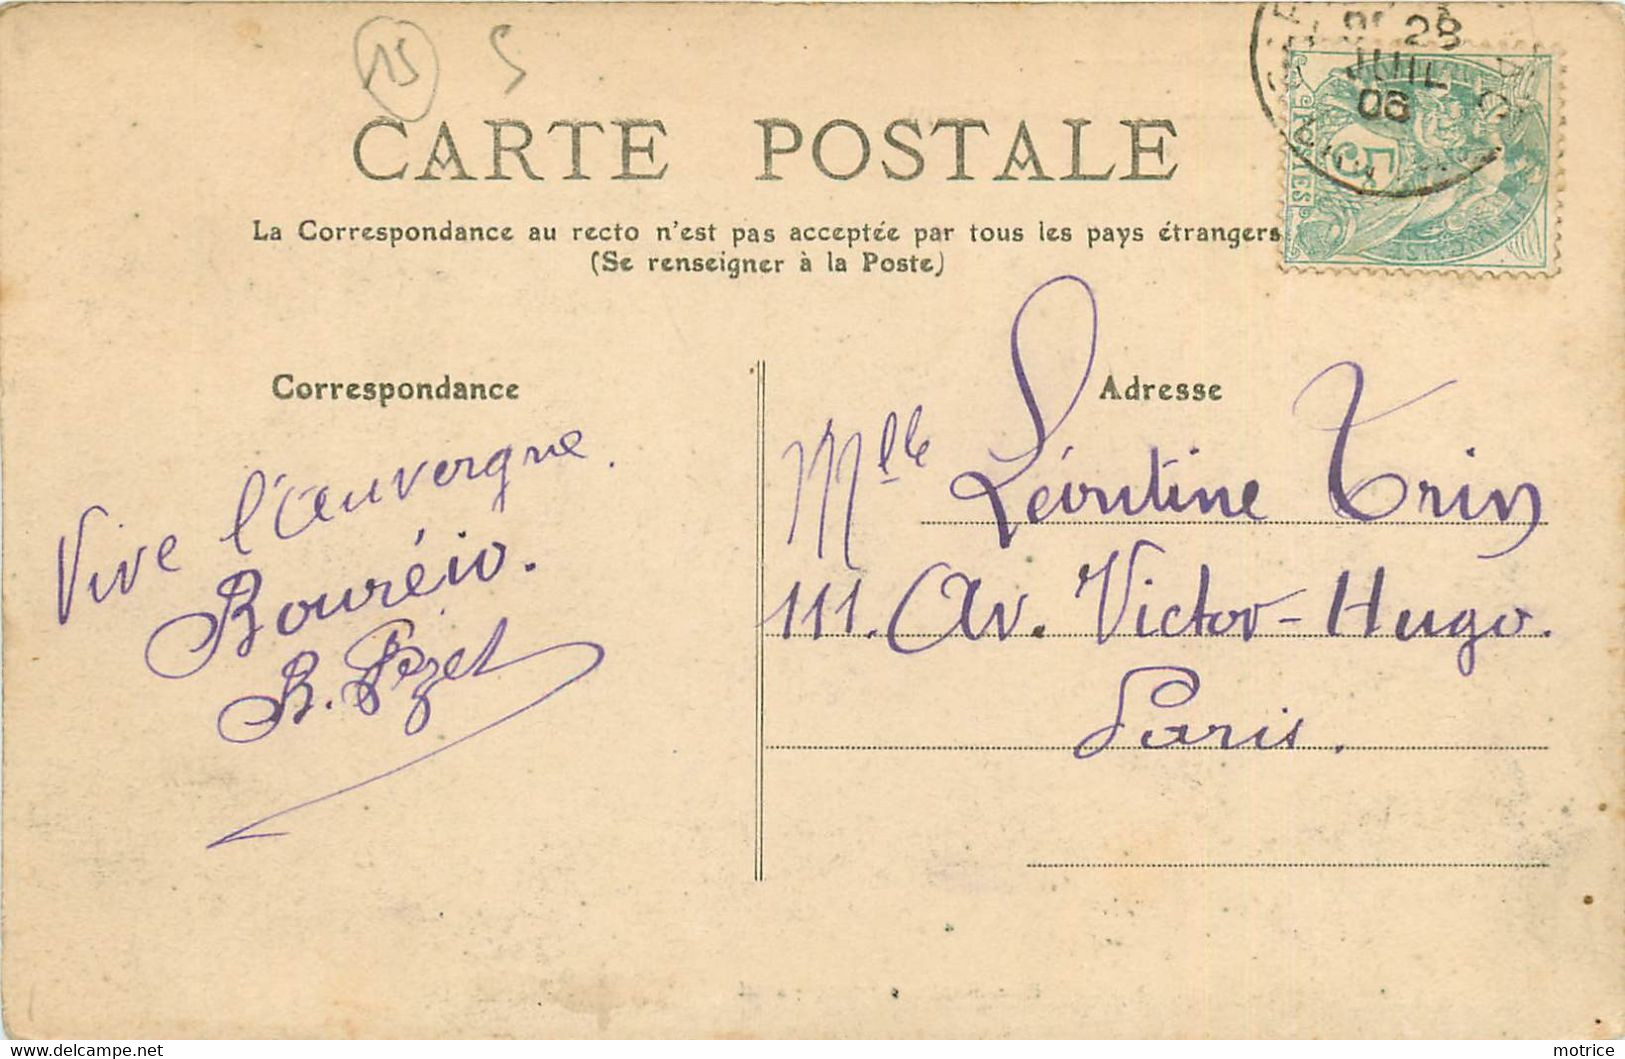 15 S
CARTE POSTALE
La Correspondance au recto n'est pas acceptée par tous les pays étrangers
(Se renseigner à la Poste)
28
JUIL
06
5
Correspondance
Vive l'Auvergne.
B. Pezet
Adresse
Mlle Léontine Trin
111. Av. Victor-Hugo.
Paris.
Delcampe.net
motrice